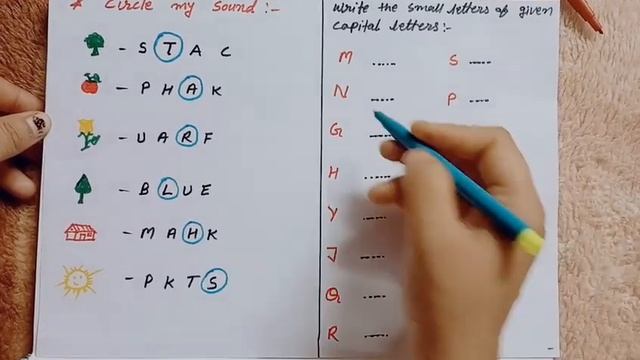 * Circle my sound :-
- S T A C
- P H A K
- U A R F
- B L U E
- M A H K
- P K T S
Write the small letters of given
capital letters :-
M ..... S .....
N ..... P .....
G .....
H .....
Y .....
J .....
Q .....
R .....